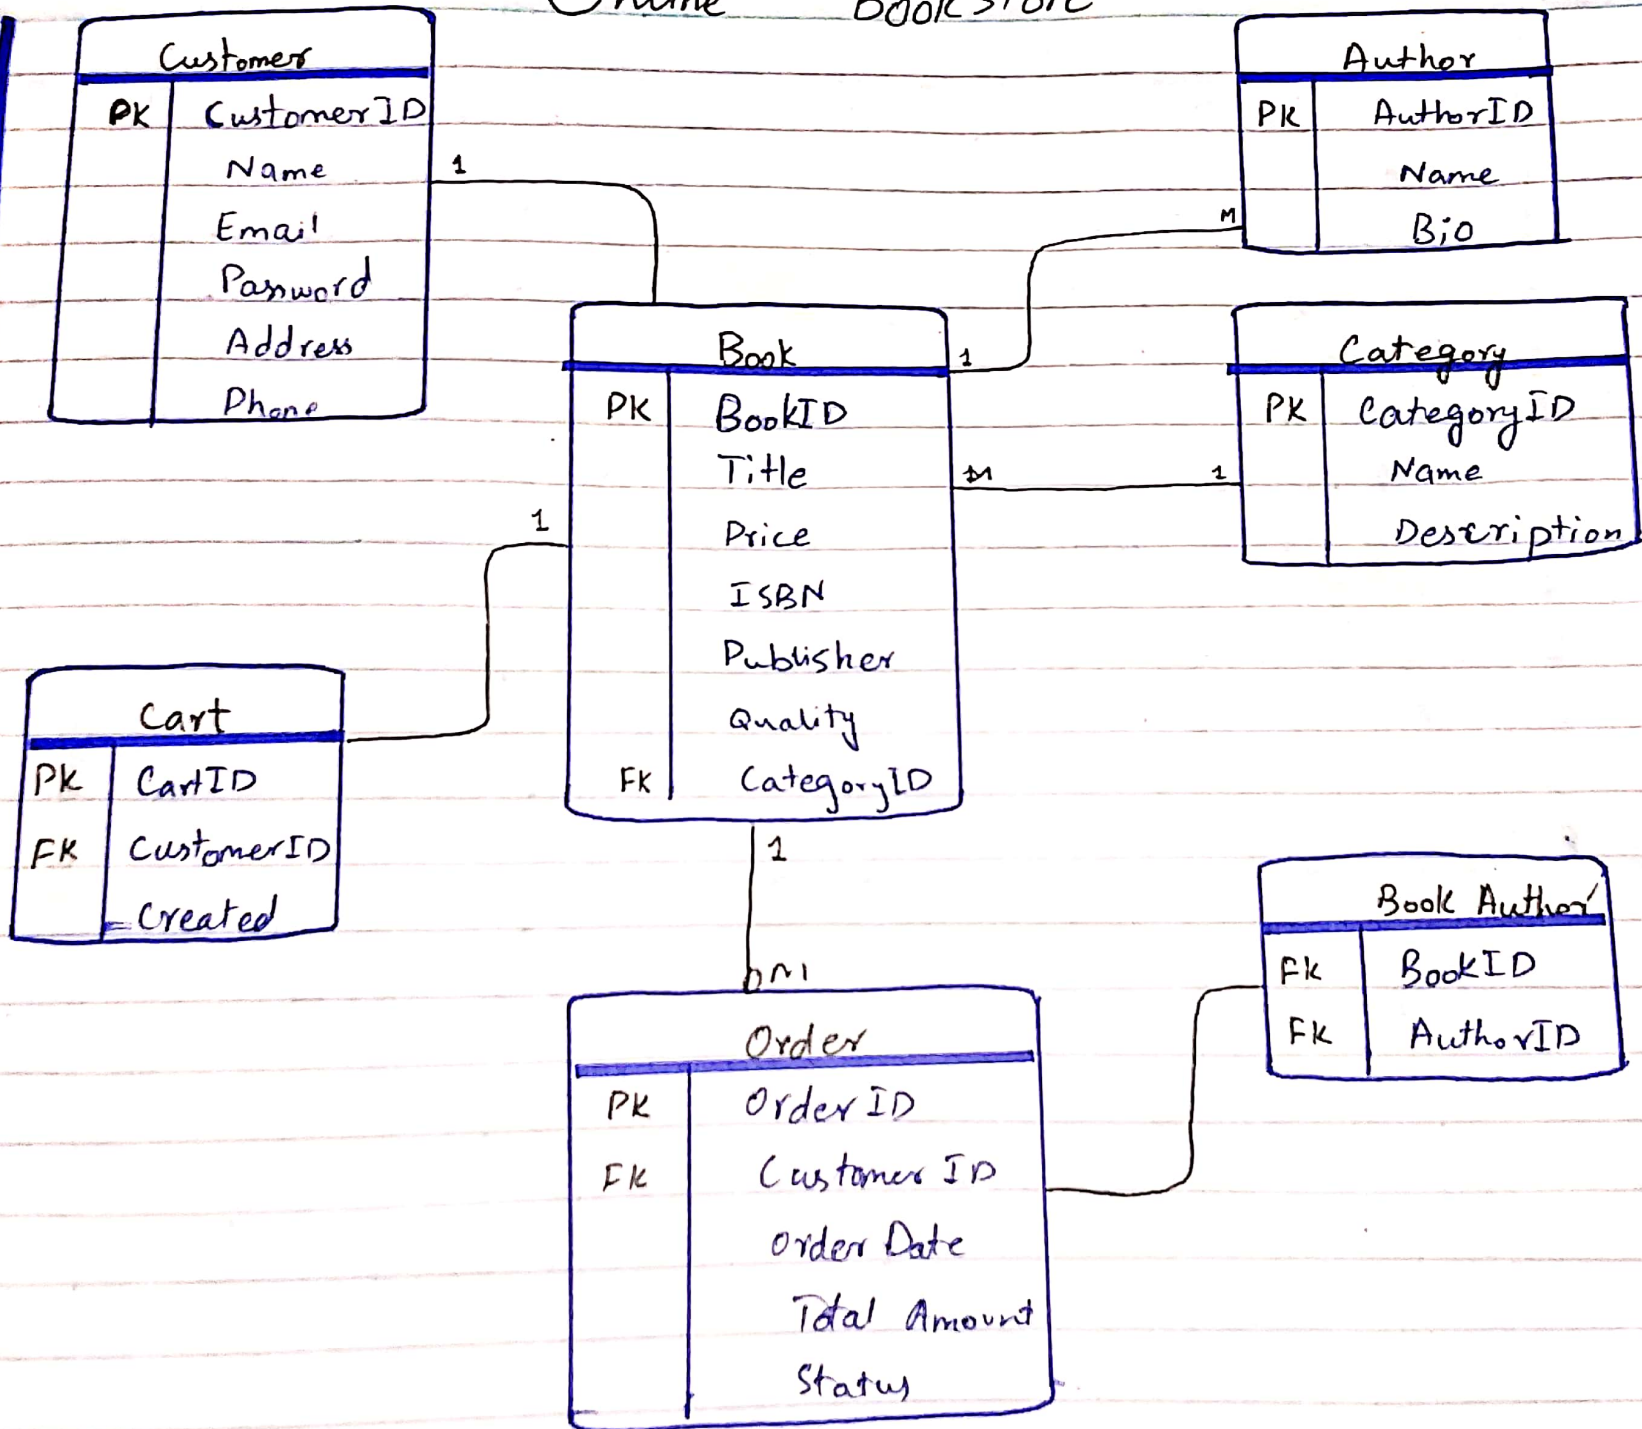 Online Bookstore
Customer
PK CustomerID
Name
Email
Password
Address
Phone
1
Author
PK AuthorID
Name
Bio
M
Book
1
PK BookID
Title
Price
ISBN
Publisher
Quality
FK CategoryID
M 1
Category
PK CategoryID
Name
Description
1
Cart
PK CartID
FK CustomerID
Created
1
M
Book Author
FK BookID
FK AuthorID
Order
PK OrderID
FK Customer ID
Order Date
Total Amount
Status